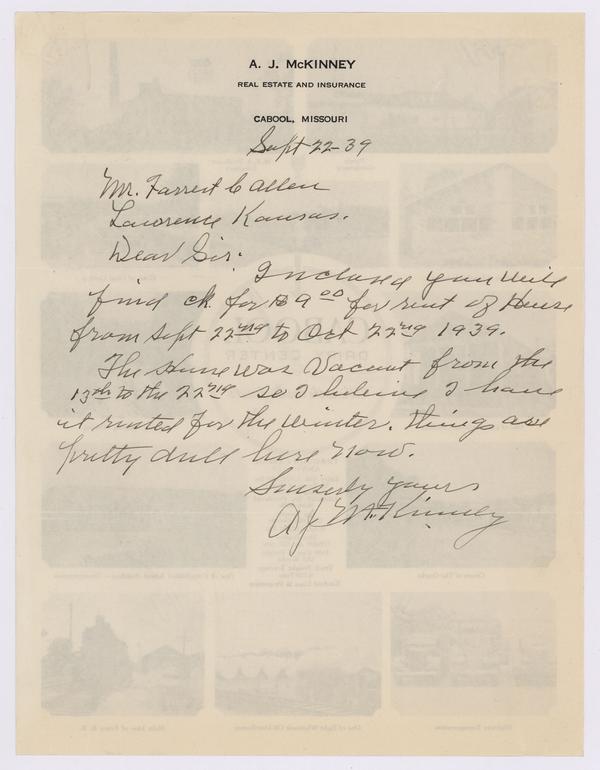 A. J. McKINNEY
REAL ESTATE AND INSURANCE
CABOOL, MISSOURI
Sept 22-39
Mr. Farrest C Allen
Lawrence Kansas.
Dear Sir:
Inclosed you will
find ck. for $9.00 for rent of House
from Sept 22nd to Oct 22nd 1939.
The House was Vacant from the
13th to the 22nd so I believe I have
it rented for the winter. things are
pretty dull here now.
Sincerly yours
A J McKinney